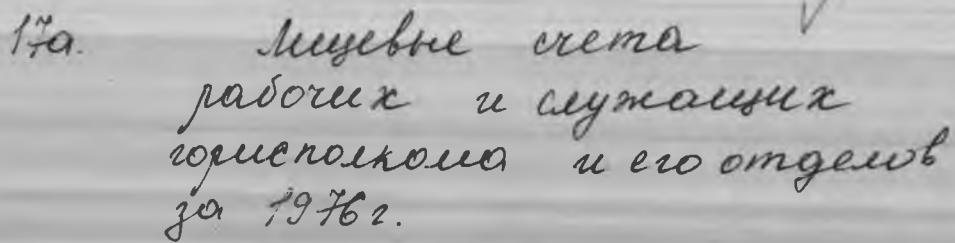 17а. Лицевые счета
рабочих и служащих
горисполкома и его отделов
за 1976 г.